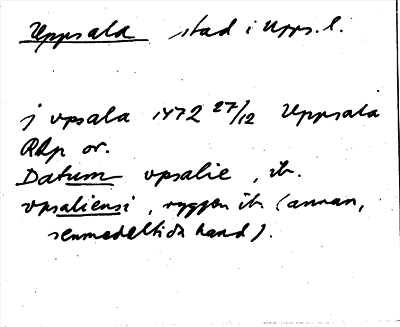 Uppsala stad i Upps. l.
j vpsala 1472 27/12 Uppsala
RAp or.
Datum vpsalie, ib.
vpsaliensi, ryggen ib. (annan,
senmedeltida hand).